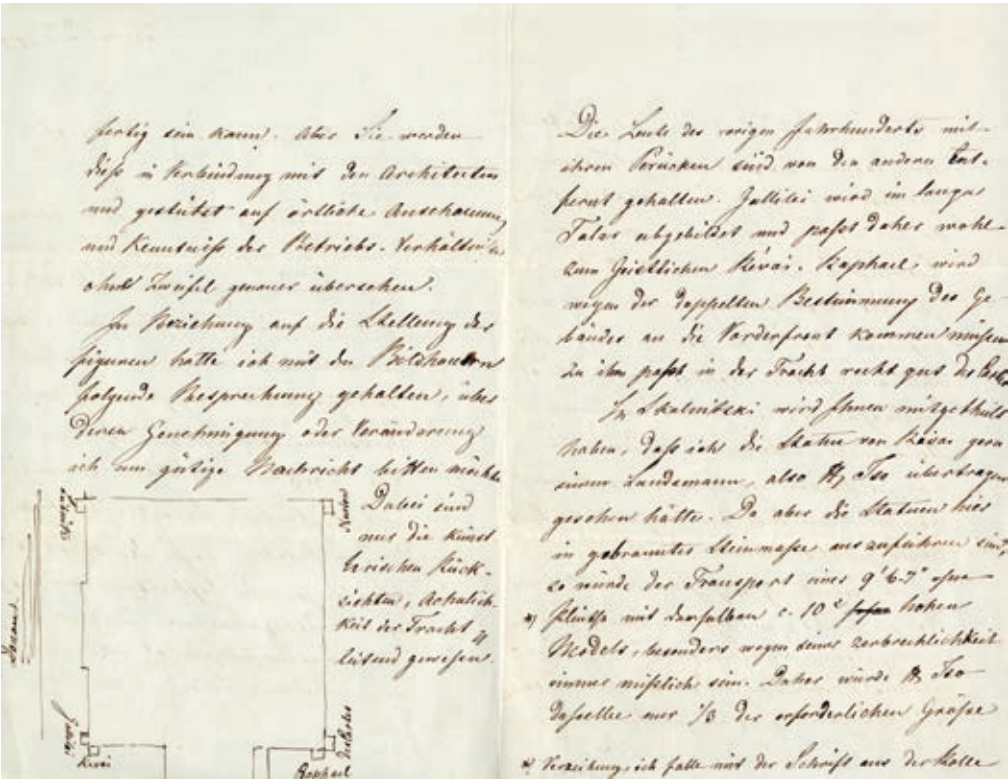 fertig sein kann. Aber Sie werden
dieß in Verbindung mit den Architecten
und gestützt auf örtliche Anschauung
und Kenntniß der Betriebs-Verhältnisse
ohne Zweifel genauer übersehen.
In Beziehung auf die Stellung der
Figuren hatte ich mit den Bildhauern
folgende Besprechung gehalten, über
deren Genehmigung oder Veränderung
ich um gütige Nachricht bitten möchte
Dabei sind
nur die künst
lerischen Rück-
sichten, Aehnlich-
keit der Tracht
leitend gewesen.
Donau
Leibnitz
Newton
Galilei
Révai
Raphael
Descartes
Die Leute des vorigen Jahrhunderts mit
ihren Perücken sind von den anderen Ent-
fernt gehalten. Gallilei wird im langen
Talar abgebildet und passt daher wohl
zum Geistlichen Révai. Raphael, wird
wegen der doppelten Bestimmung des Ge-
bäudes an die Vorderfront kommen müssen
zu ihm paßt in der Tracht recht gut
H. Skalnitzki wird Ihnen mitgetheilt
haben, daß ich die Statue von Révai gern
einem Landsmann, also H. Iso übertragen
gesehen hätte. Da aber die Statuen hier
in gebrannter Steinmasse auszuführen sind,
so würde der Transport eines 9' 6-7" ohne
*) Plinthe mit derselben c. 10' hohen
Models, besonders wegen seiner Zerbrechlichkeit
immer mißlich sein. Daher würde H. Iso
dasselbe nur 1/3 der erforderlichen Größe
*) Verzeihung, ich falle mit der Schrift aus der Rolle